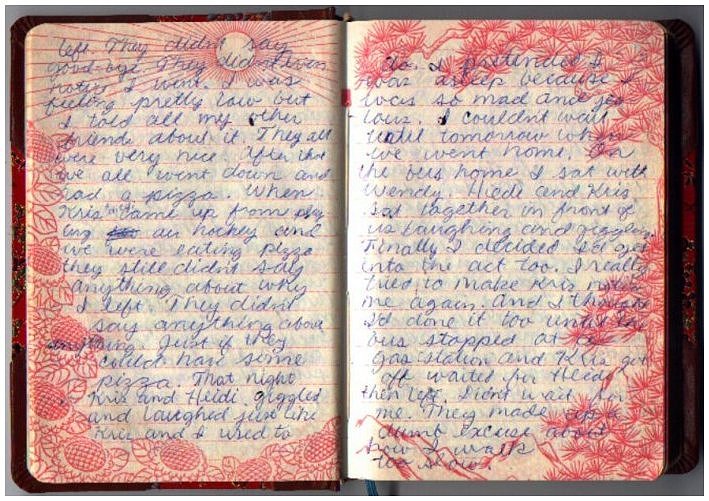 left. They didn't say
good-bye. They didn't even
notice I went. I was
feeling pretty low but
I told all my other
friends about it. They all
were very nice. After that
we all went down and
had a pizza. When
Kris came up from play
ing air hockey and
we were eating pizza
they still didn't say
anything about why
I left. They didn't
say anything about
anything. Just if they
could have some
pizza. That night
Kris and Heidi giggled
and laughed just like
Kris and I used to
do. I pretended I
was asleep because I
was so mad and jea
lous. I couldn't wait
until tomorrow when
we went home. On
the bus home I sat with
Wendy. Hiedi and Kris
sat together in front of
us laughing and giggling.
Finally I decided to get
into the act too. I really
tried to make Kris notice
me again. And I thought
I'd done it too until the
bus stopped at a
gas station and Kris got
off waited for Heidi
then left. Didn't wait for
me. They made up a
dumb excuse about
how I walk
too slow.